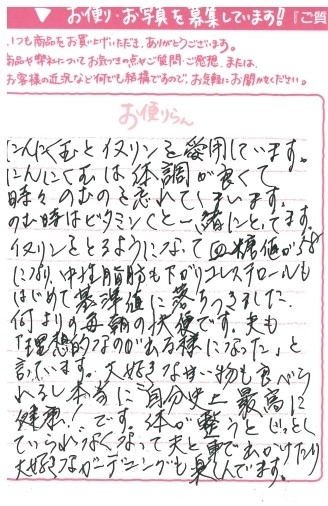 ▼ お便り・お写真を募集しています!! 『ご質
いつも商品をお買い上げいただき、ありがとうございます。
商品や弊社についてお気づきの点やご質問・ご感想、または、
お客様の近況など何でも結構ですので、お気軽にお聞かせください。
お便りらん
にんにくむとイヌリンを愛用しています。
にんにくむは体調が良くて
時々のむのを忘れてしまいます。
のむ時はビタミンCと一緒にとってます。
イヌリンをとるようになって血糖値が5.8
になり、中性脂肪も下がりコレステロールも
はじめて基準値に落ちつきました。
何より毎朝の快便です。夫も
「理想的なのがある様になった」と
言っています。大好きな甘い物も食べら
れるし本当に「自分史上最高に
健康!」です。体が整うとじっとし
ていられなくなって夫と車で出かけたり
大好きなガーデニングも楽しんでます。